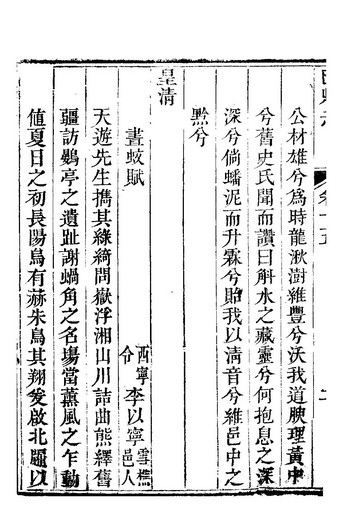 公材雄兮為時龍湫澍維豐兮沃我道腴理黃中
兮舊史氏聞而讚曰斛水之藏靈兮何抱息之深
深兮倘蟠泥而升霖兮貽我以清音兮維邑中之
黔兮
皇清
晝蚊賦
西寧令李以寧雪樵邑人
天遊先生攜其綠綺問嶽浮湘山川詰曲熊繹舊
疆訪鵩亭之遺趾謝蝸角之名場當薰風之乍動
值夏日之初長陽鳥有赫朱鳥其翔爰啟北牖以